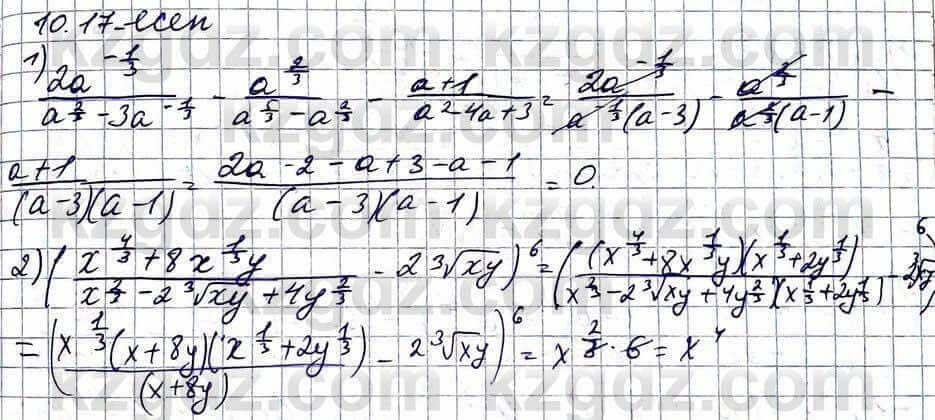 10.17-есеп
1) \frac{2a^{-\frac{1}{3}}}{a^{\frac{2}{3}} - 3a^{-\frac{1}{3}}} - \frac{a^{\frac{2}{3}}}{a^{\frac{5}{3}} - a^{\frac{2}{3}}} - \frac{a+1}{a^2 - 4a + 3} = \frac{2a^{-\frac{1}{3}}}{a^{-\frac{1}{3}}(a-3)} - \frac{a^{\frac{2}{3}}}{a^{\frac{2}{3}}(a-1)} -
\frac{a+1}{(a-3)(a-1)} = \frac{2a - 2 - a + 3 - a - 1}{(a-3)(a-1)} = 0.
2) \left(\frac{x^{\frac{4}{3}} + 8x^{\frac{1}{3}}y}{x^{\frac{2}{3}} - 2\sqrt[3]{xy} + 4y^{\frac{2}{3}}} - 2\sqrt[3]{xy}\right)^6 = \left(\frac{(x^{\frac{4}{3}} + 8x^{\frac{1}{3}}y)(x^{\frac{1}{3}} + 2y^{\frac{1}{3}})}{(x^{\frac{2}{3}} - 2\sqrt[3]{xy} + 4y^{\frac{2}{3}})(x^{\frac{1}{3}} + 2y^{\frac{1}{3}})} - 2\sqrt[3]{xy}\right)^6
= \left(\frac{x^{\frac{1}{3}}(x + 8y)(x^{\frac{1}{3}} + 2y^{\frac{1}{3}})}{(x + 8y)} - 2\sqrt[3]{xy}\right)^6 = x^{\frac{2}{3} \cdot 6} = x^4
kzgdz.com